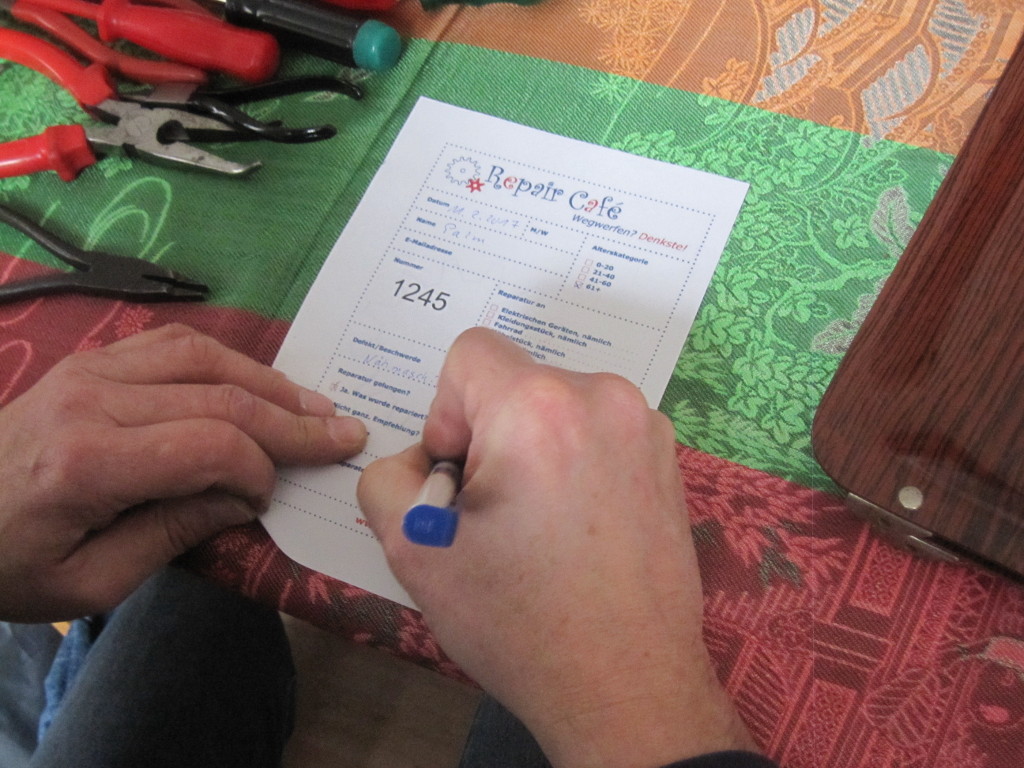 Repair Café
Wegwerfen? Denkste!
Datum 11.2.2017 M/W
Name Palm
E-Mailadresse
Alterskategorie
0-20
21-40
41-60
61+
Nummer
1245
Reparatur an
Elektrischen Geräten, nämlich
Kleidungsstück, nämlich
Fahrrad
nämlich
Defekt/Beschwerde
Reparatur gelungen?
Ja. Was wurde repariert?
Nicht ganz, Empfehlung?